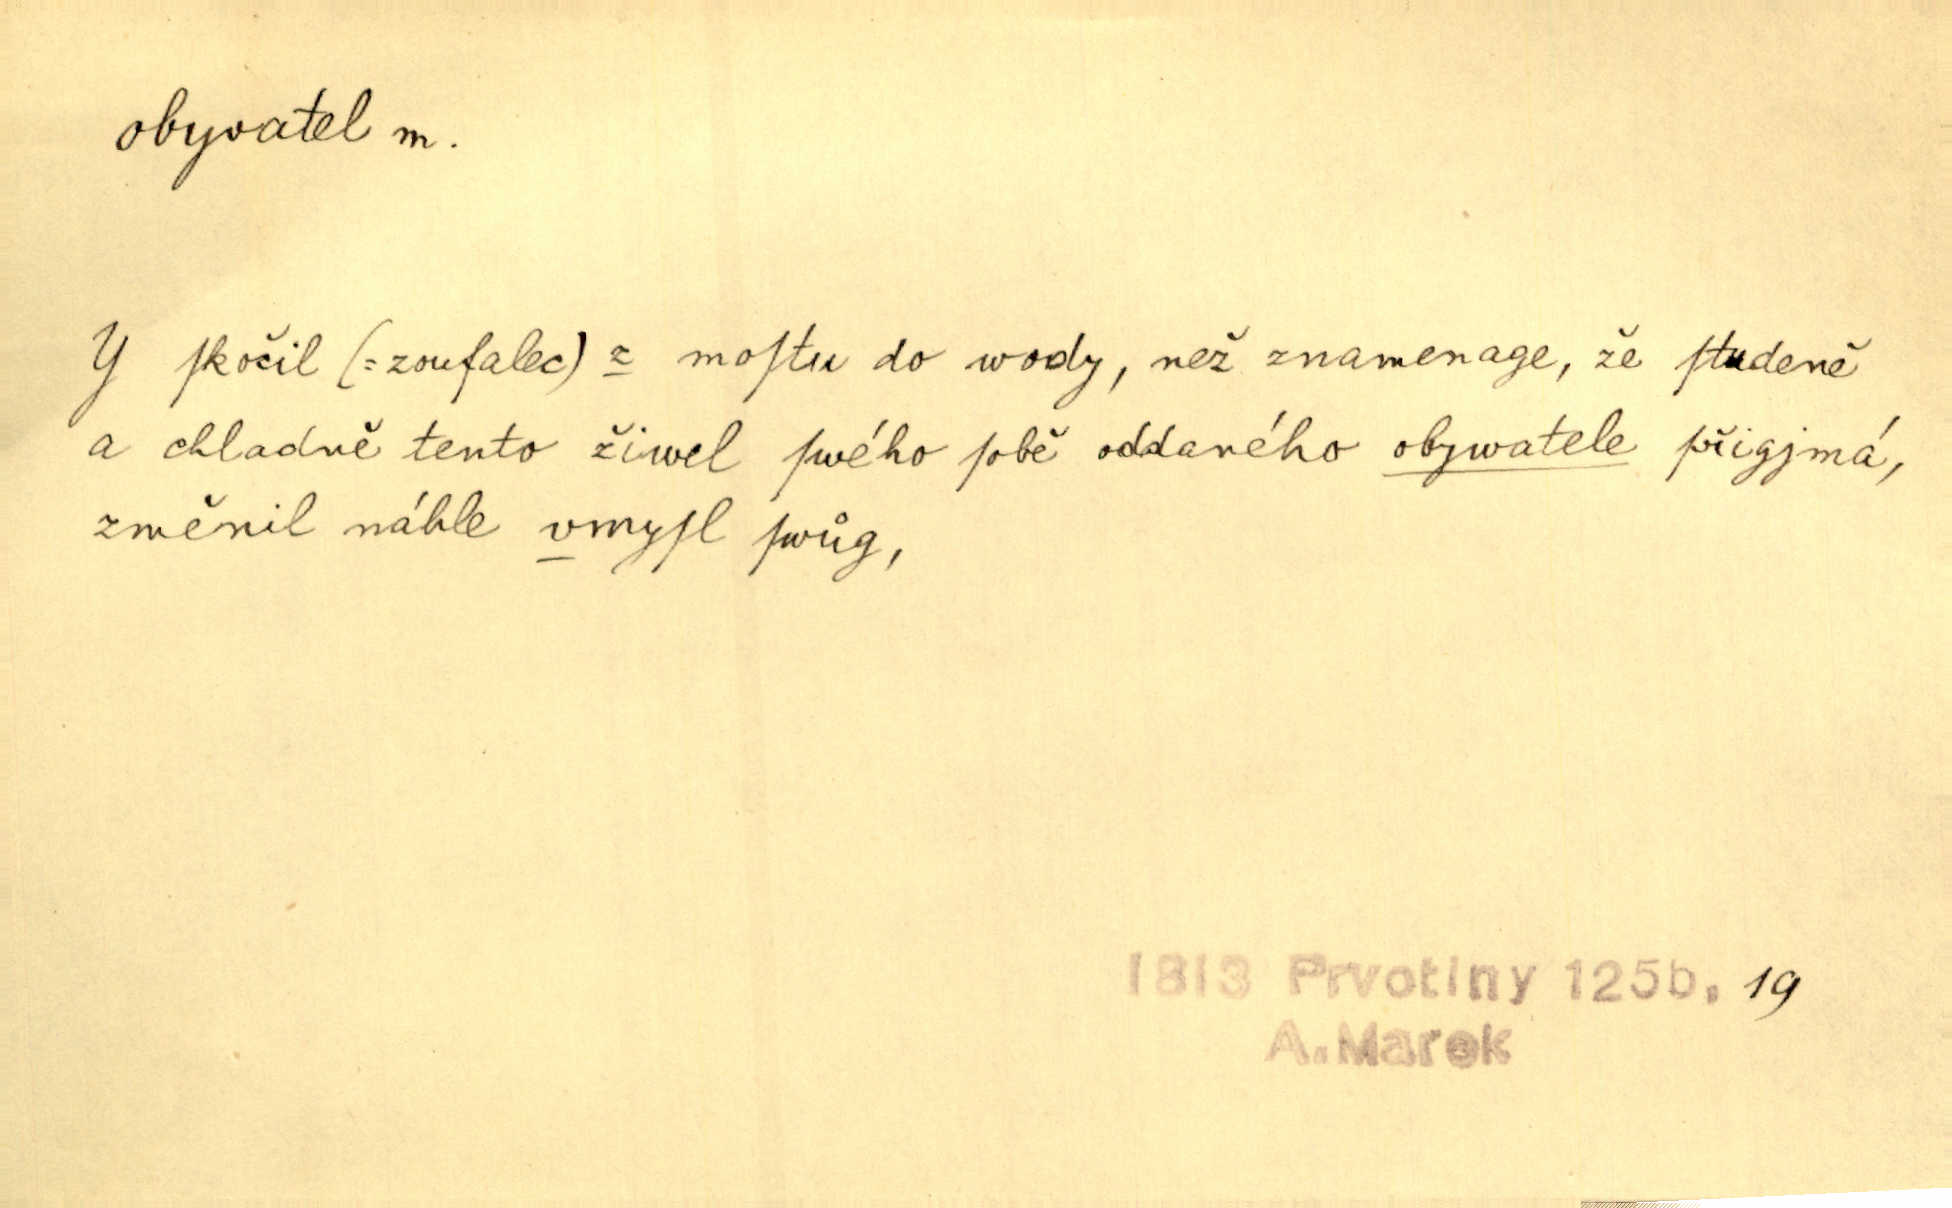 obyvatel m.
Y ſkočil (=zoufalec) z moſtu do wody, než znamenage, že ſtudeně
a chladně tento žiwel ſwého ſobě oddaného obywatele přigjmá,
změnil náhle vmyſl ſwůg,
1813 Prvotiny 125b, 19
A. Marek